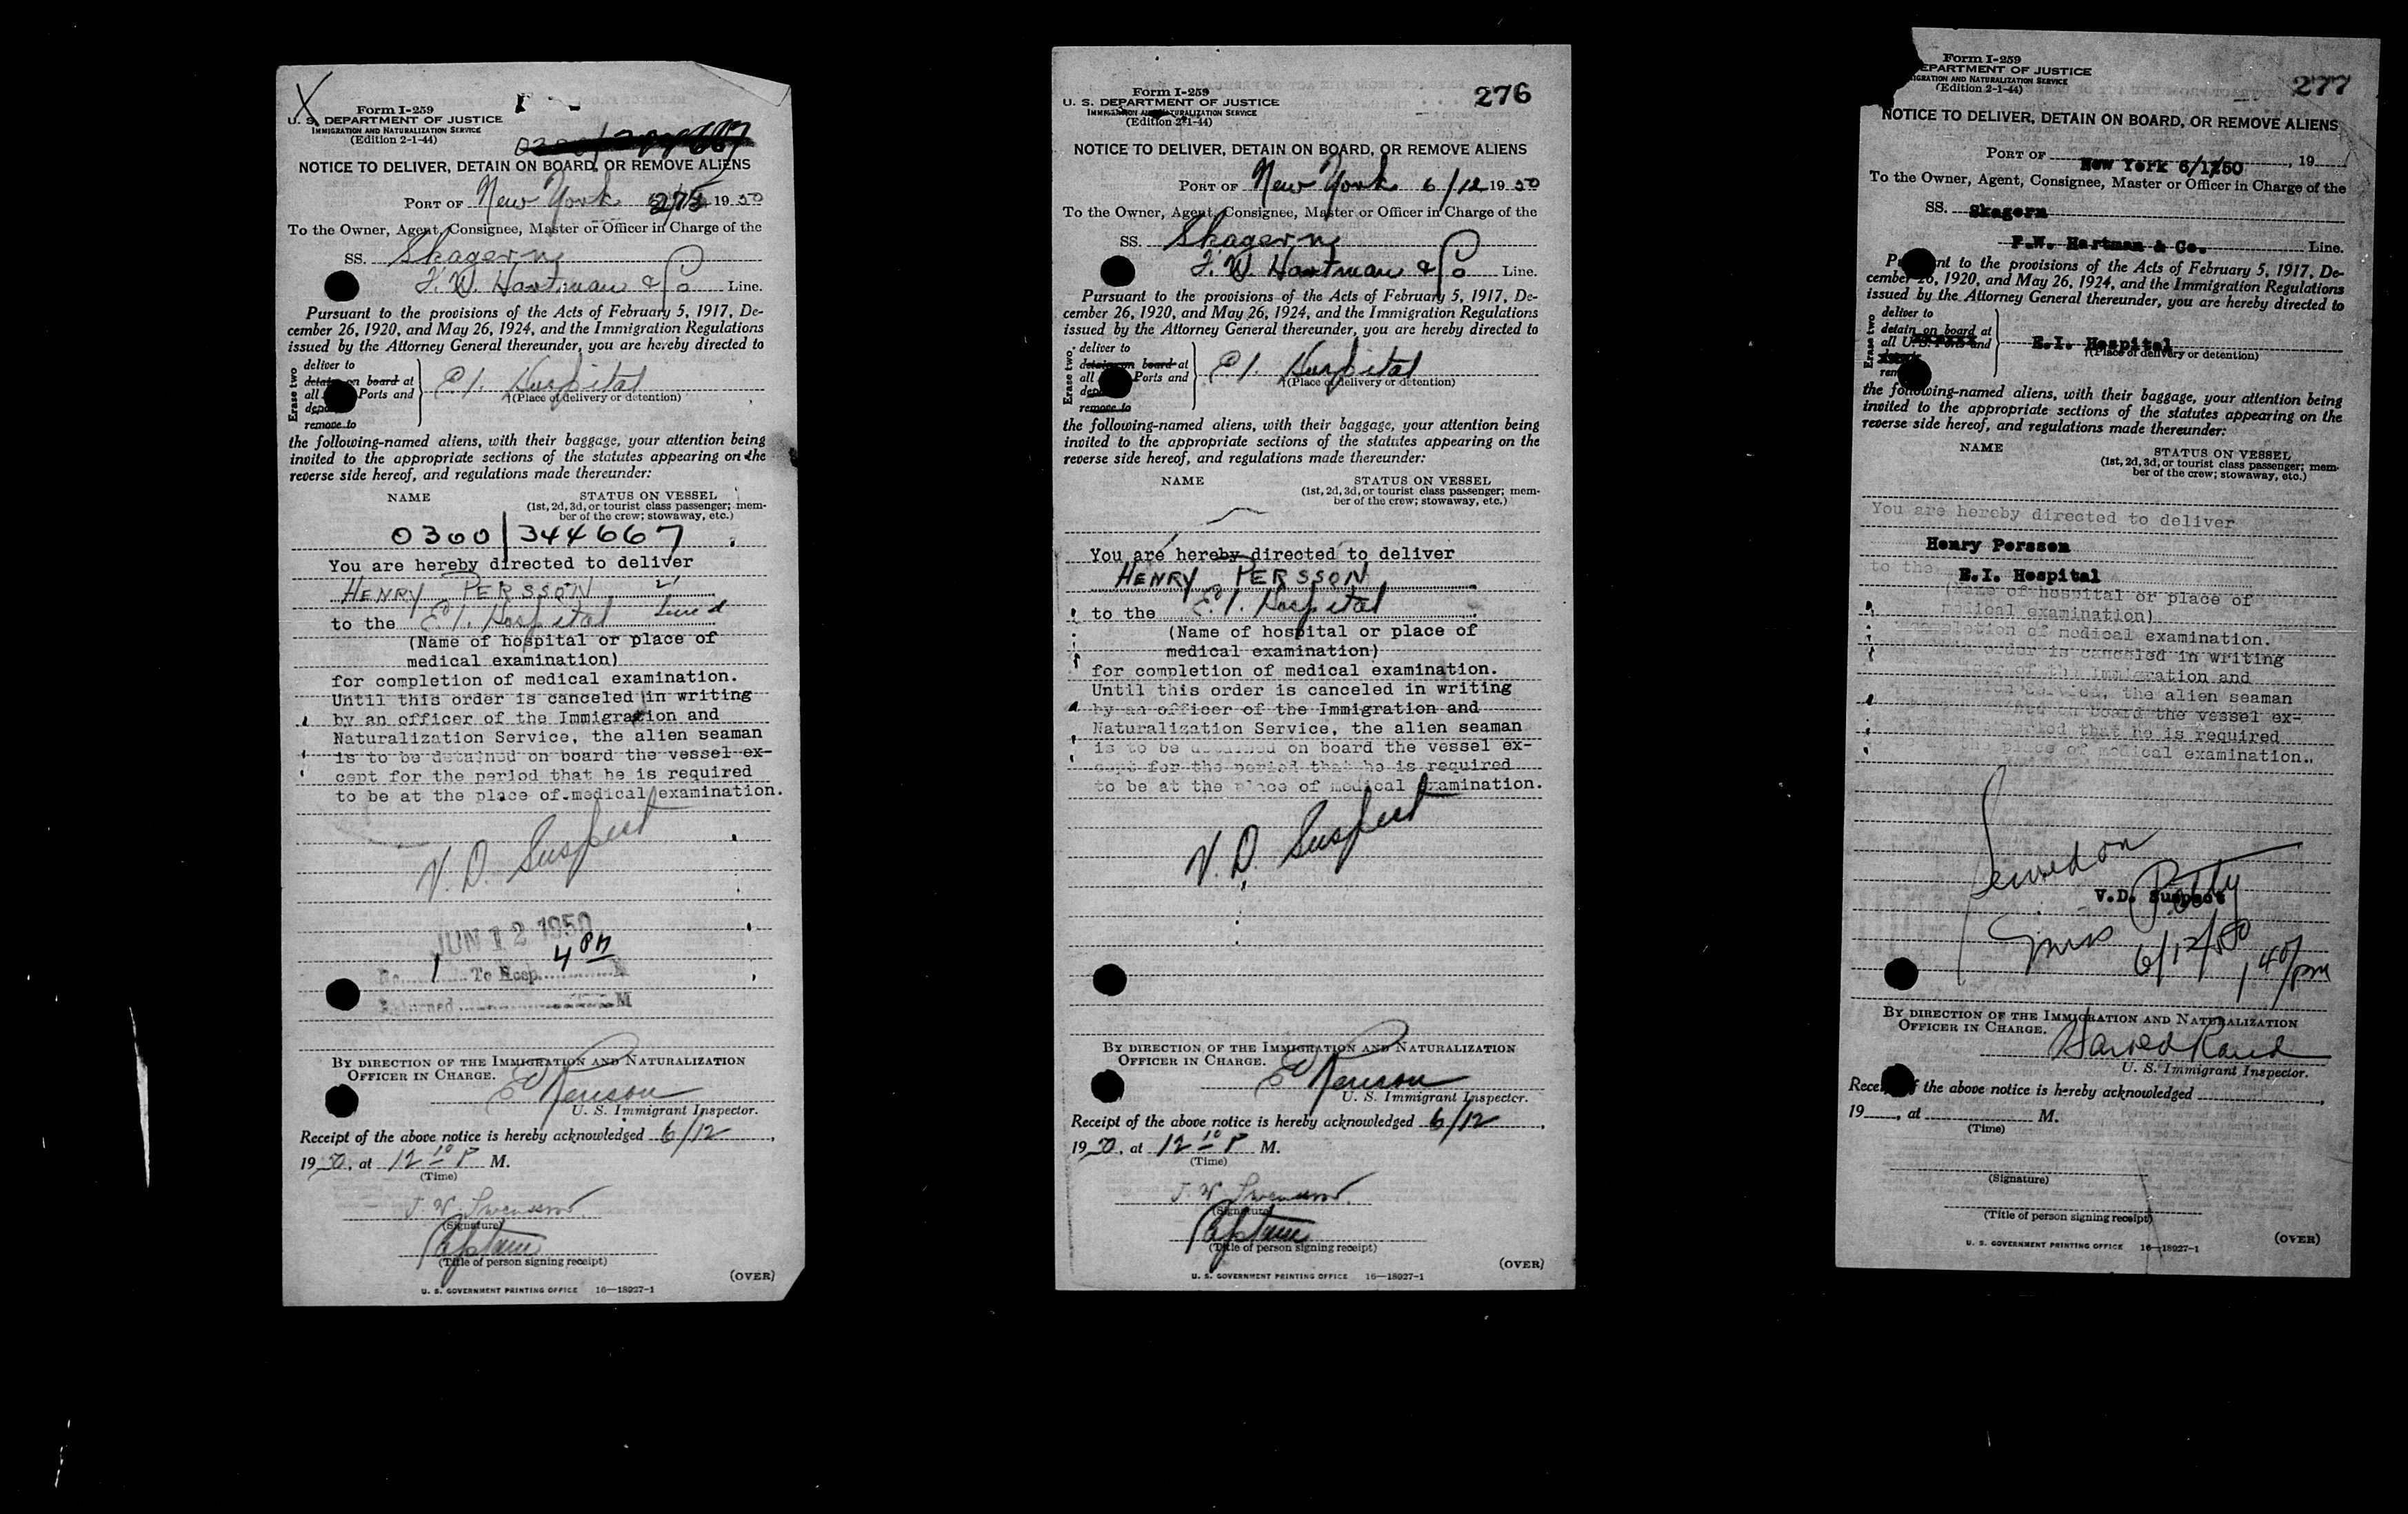 X
Form I-259
U. S. DEPARTMENT OF JUSTICE
IMMIGRATION AND NATURALIZATION SERVICE
(Edition 2-1-44)
NOTICE TO DELIVER, DETAIN ON BOARD, OR REMOVE ALIENS
PORT OF New York 275 1950
To the Owner, Agent, Consignee, Master or Officer in Charge of the
SS. Skagern
F. W. Hartman & Co Line.
Pursuant to the provisions of the Acts of February 5, 1917, De-
cember 26, 1920, and May 26, 1924, and the Immigration Regulations
issued by the Attorney General thereunder, you are hereby directed to
Erase two
deliver to
detain on board at
all Ports and
remove to
E I. Hospital
(Place of delivery or detention)
the following-named aliens, with their baggage, your attention being
invited to the appropriate sections of the statutes appearing on the
reverse side hereof, and regulations made thereunder:
NAME STATUS ON VESSEL
(1st, 2d, 3d, or tourist class passenger; mem-
ber of the crew; stowaway, etc.)
0300/344667
You are hereby directed to deliver
HENRY PERSSON
to the E. I. Hospital
(Name of hospital or place of
medical examination)
for completion of medical examination.
Until this order is canceled in writing
by an officer of the Immigration and
Naturalization Service, the alien seaman
is to be detained on board the vessel ex-
cept for the period that he is required
to be at the place of medical examination.
V. D. Suspect
JUN 12 1950
No. 1 To Hosp. 4 PM
Returned M
BY DIRECTION OF THE IMMIGRATION AND NATURALIZATION
OFFICER IN CHARGE.
U. S. Immigrant Inspector.
Receipt of the above notice is hereby acknowledged 6/12,
1950, at 12 10 P M.
(Time)
(Signature)
Captain
(Title of person signing receipt)
(OVER)
U. S. GOVERNMENT PRINTING OFFICE 16—18927-1
276
Form I-259
U. S. DEPARTMENT OF JUSTICE
IMMIGRATION AND NATURALIZATION SERVICE
(Edition 2-1-44)
NOTICE TO DELIVER, DETAIN ON BOARD, OR REMOVE ALIENS
PORT OF New York 6/12 1950
To the Owner, Agent, Consignee, Master or Officer in Charge of the
SS. Skagern
F. W. Hartman & Co Line.
Pursuant to the provisions of the Acts of February 5, 1917, De-
cember 26, 1920, and May 26, 1924, and the Immigration Regulations
issued by the Attorney General thereunder, you are hereby directed to
Erase two
deliver to
detain on board at
all Ports and
remove to
E I. Hospital
(Place of delivery or detention)
the following-named aliens, with their baggage, your attention being
invited to the appropriate sections of the statutes appearing on the
reverse side hereof, and regulations made thereunder:
NAME STATUS ON VESSEL
(1st, 2d, 3d, or tourist class passenger; mem-
ber of the crew; stowaway, etc.)
You are hereby directed to deliver
HENRY PERSSON
to the E. I. Hospital
(Name of hospital or place of
medical examination)
for completion of medical examination.
Until this order is canceled in writing
by an officer of the Immigration and
Naturalization Service, the alien seaman
is to be detained on board the vessel ex-
cept for the period that he is required
to be at the place of medical examination.
V. D. Suspect
BY DIRECTION OF THE IMMIGRATION AND NATURALIZATION
OFFICER IN CHARGE.
U. S. Immigrant Inspector.
Receipt of the above notice is hereby acknowledged 6/12,
1950, at 12 10 P M.
(Time)
(Signature)
Captain
(Title of person signing receipt)
(OVER)
U. S. GOVERNMENT PRINTING OFFICE 16—18927-1
277
Form I-259
DEPARTMENT OF JUSTICE
IMMIGRATION AND NATURALIZATION SERVICE
(Edition 2-1-44)
NOTICE TO DELIVER, DETAIN ON BOARD, OR REMOVE ALIENS
PORT OF New York 6/12/50, 19
To the Owner, Agent, Consignee, Master or Officer in Charge of the
SS. Skagern
F.W. Hartman & Co. Line.
Pursuant to the provisions of the Acts of February 5, 1917, De-
cember 26, 1920, and May 26, 1924, and the Immigration Regulations
issued by the Attorney General thereunder, you are hereby directed to
Erase two
deliver to
detain on board at
all U.S. Ports and
E.I. Hospital
(Place of delivery or detention)
the following-named aliens, with their baggage, your attention being
invited to the appropriate sections of the statutes appearing on the
reverse side hereof, and regulations made thereunder:
NAME STATUS ON VESSEL
(1st, 2d, 3d, or tourist class passenger; mem-
ber of the crew; stowaway, etc.)
You are hereby directed to deliver
Henry Persson
to the E.I. Hospital
(Name of hospital or place of
medical examination)
completion of medical examination.
order is canceled in writing
of the Immigration and
Service, the alien seaman
on board the vessel ex-
period that he is required
the place of medical examination.
Served on
V.D. Suspect
Miss Petty
6/12/50
1 40/pm
BY DIRECTION OF THE IMMIGRATION AND NATURALIZATION
OFFICER IN CHARGE.
U. S. Immigrant Inspector.
Receipt of the above notice is hereby acknowledged
19, at M.
(Time)
(Signature)
(Title of person signing receipt)
(OVER)
U. S. GOVERNMENT PRINTING OFFICE 16—18927-1